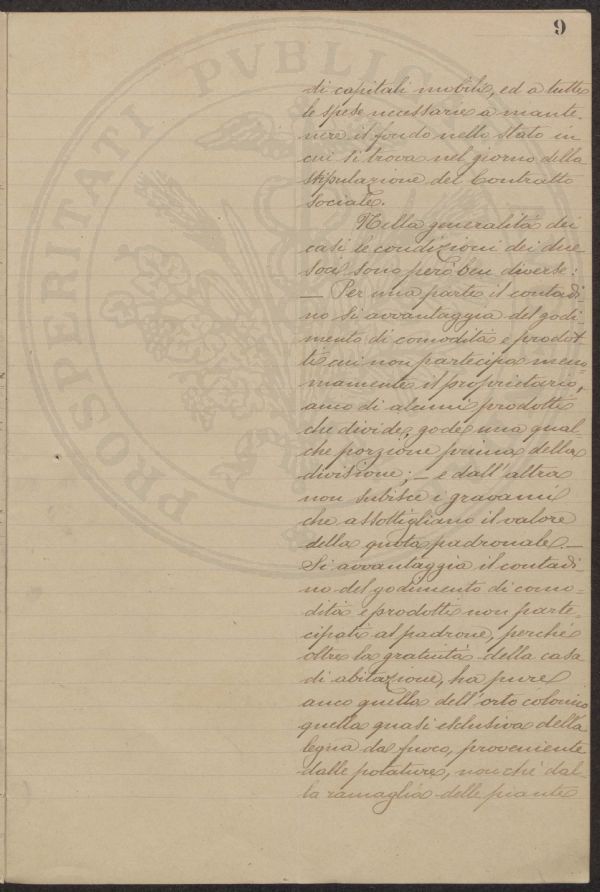 9
di capitali mobili, ed a tutte
le spese necessarie a mante-
nere il fondo nello stato in
cui si trova nel giorno della
stipulazione del Contratto
sociale.
Nella generalità dei
casi le condizioni dei due
soci sono però ben diverse:
— Per una parte il contadi
no si avvantaggia del godi=
mento di comodità e prodot
ti cui non partecipa meno
mamente il proprietario,
anco di alcuni prodotti
che divide, gode una qual
che porzione prima della
divisione; — e dall'altra
non subisce i gravami
che assottigliano il valore
della quota padronale. —
Si avvantaggia il contadi=
no del godimento di como=
dità e prodotti non parte=
cipati al padrone, perchè
oltre la gratuità della casa
di abitazione, ha pure
anco quella dell'orto colonico
quella quasi esclusiva della
legna da fuoco, proveniente
dalle potature, nonchè dal
la ramaglia delle piante
PROSPERITATI PVBLIC